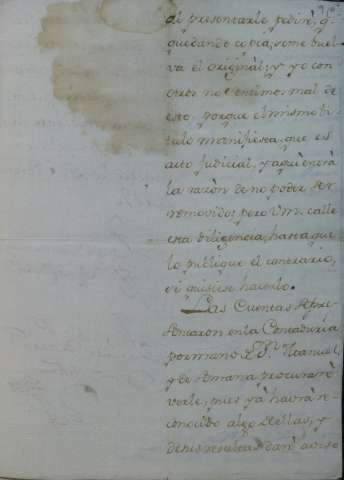 al presentarle pedirè, q
quedando copia, se me buel
va el original; y yo con
otros no sentimos mal de
esto, porque el mismo ti
tulo manifiesta, que es
acto judicial, y aqui entra
la razòn de no poder ser
removido; pero Vm. calle
esta diligencia, hasta que
lo publique el contrario,
si quisiese hacerlo.
Las Cuentas se pre
sentaron en la Contaduria
por mano de Dn. Manuel,
y de Amana procurarè
verle, pues yà havrà re-
conocido algo de ellas, y
de sus resultas darè aviso